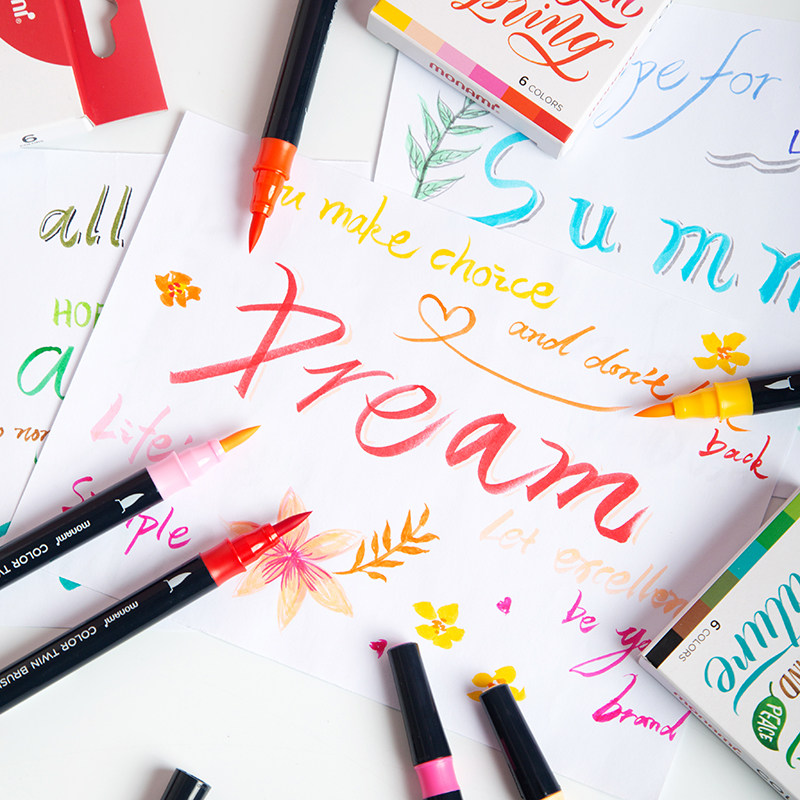 monami
6
6 COLORS
monami
Spring
pe for
Summ
all
HOP
a
u make choice
and don't
back
Dream
Life
ple
Let excellen
be yo
brand
monami COLOR TWIN
monami COLOR TWIN BRUSH
6 COLORS
ature
AND
PEACE
monami